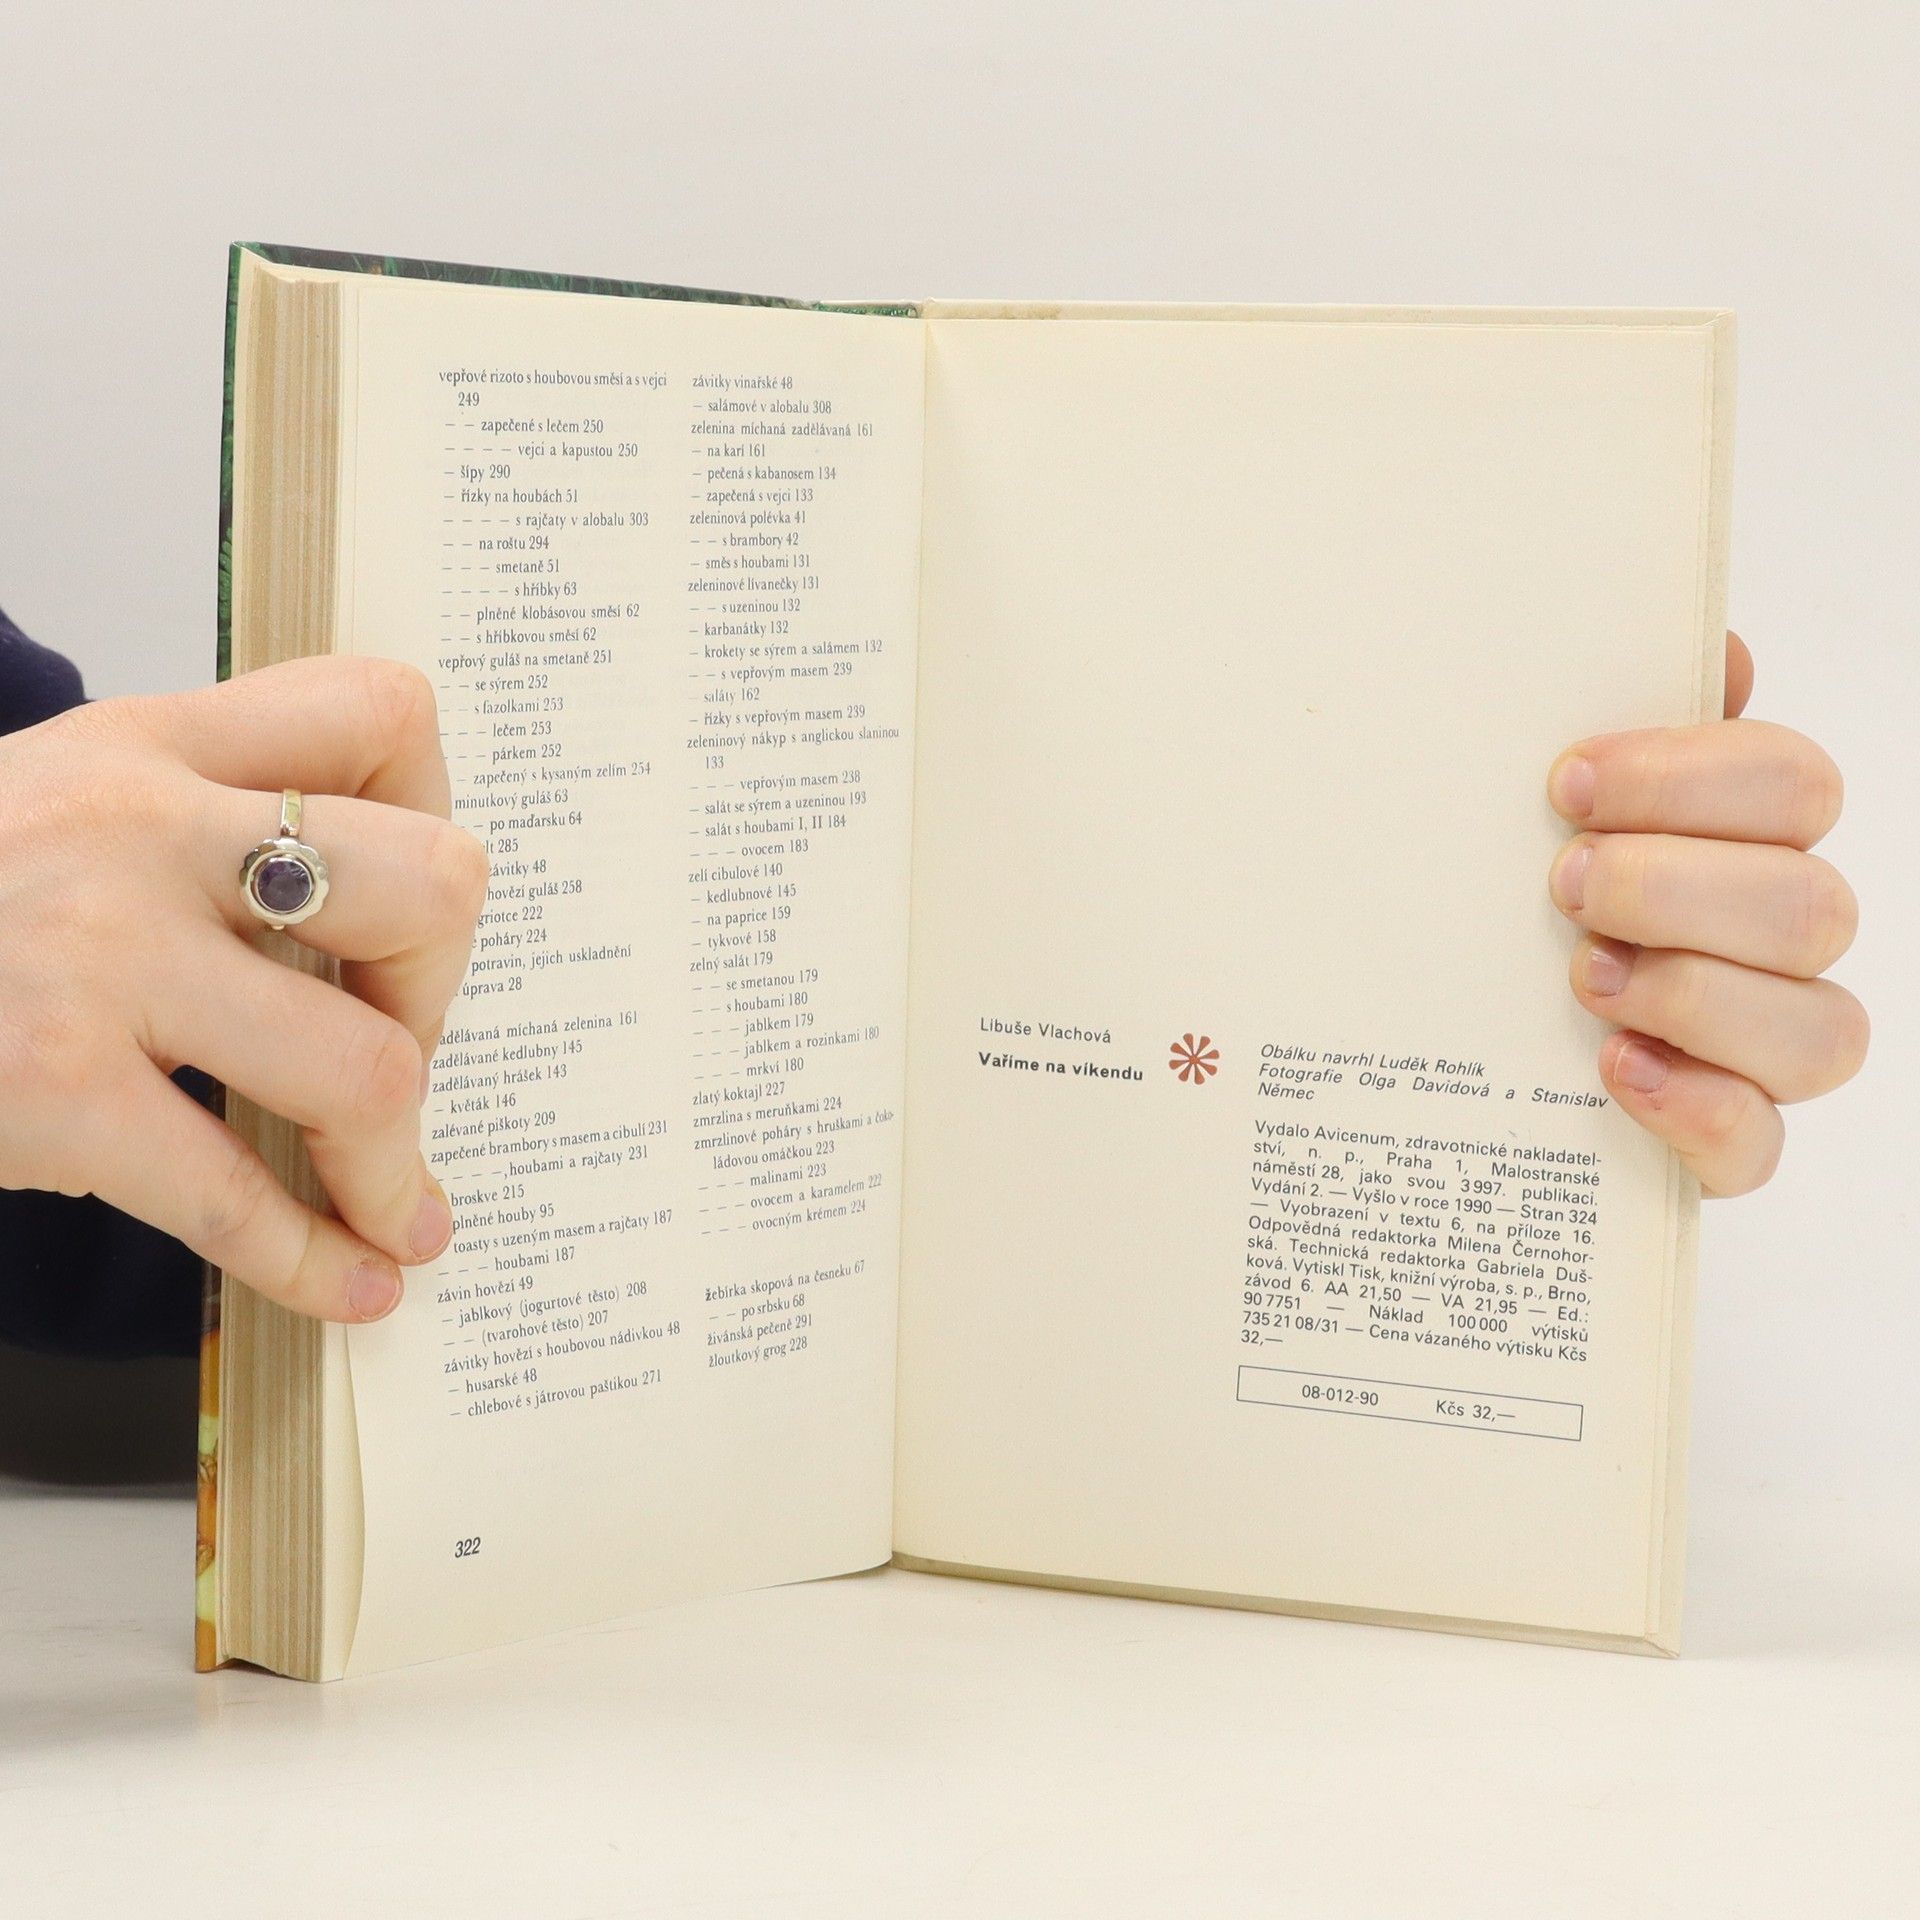 vepřové rizoto s houbovou směsí a s vejci
249
– – zapečené s lečem 250
– – – – vejci a kapustou 250
– šípy 290
– řízky na houbách 51
– – – – s rajčaty v alobalu 303
– – na roštu 294
– – – smetaně 51
– – – – s hříbky 63
– – plněné klobásovou směsí 62
– – s hříbkovou směsí 62
vepřový guláš na smetaně 251
– – se sýrem 252
– – s fazolkami 253
– – – lečem 253
– – – párkem 252
– zapečený s kysaným zelím 254
minutkový guláš 63
– po maďarsku 64
lt 285
závitky 48
hovězí guláš 258
griotce 222
poháry 224
potravin, jejich uskladnění
úprava 28
adělávaná míchaná zelenina 161
zadělávané kedlubny 145
zadělávaný hrášek 143
– květák 146
zalévané piškoty 209
zapečené brambory s masem a cibulí 231
– – –, houbami a rajčaty 231
broskve 215
plněné houby 95
toasty s uzeným masem a rajčaty 187
– – – houbami 187
závin hovězí 49
– jablkový (jogurtové těsto) 208
– – (tvarohové těsto) 207
závitky hovězí s houbovou nádivkou 48
– husarské 48
– chlebové s játrovou paštikou 271
322
závitky vinařské 48
– salámové v alobalu 308
zelenina míchaná zadělávaná 161
– na karí 161
– pečená s kabanosem 134
– zapečená s vejci 133
zeleninová polévka 41
– – s brambory 42
– směs s houbami 131
zeleninové lívanečky 131
– – s uzeninou 132
– karbanátky 132
– krokety se sýrem a salámem 132
– – s vepřovým masem 239
– saláty 162
– řízky s vepřovým masem 239
zeleninový nákyp s anglickou slaninou
133
– – – vepřovým masem 238
– salát se sýrem a uzeninou 193
– salát s houbami I, II 184
– – – ovocem 183
zelí cibulové 140
– kedlubnové 145
– na paprice 159
– tykvové 158
zelný salát 179
– – se smetanou 179
– – s houbami 180
– – – jablkem 179
– – – jablkem a rozinkami 180
– – – mrkví 180
zlatý koktajl 227
zmrzlina s meruňkami 224
zmrzlinové poháry s hruškami a čoko-
ládovou omáčkou 223
– – – malinami 223
– – – ovocem a karamelem 222
– – – ovocným krémem 224
žebírka skopová na česneku 67
– – po srbsku 68
živánská pečeně 291
žloutkový grog 228
Libuše Vlachová
Vaříme na víkendu
Obálku navrhl Luděk Rohlík
Fotografie Olga Davidová a Stanislav
Němec
Vydalo Avicenum, zdravotnické nakladatel-
ství, n. p., Praha 1, Malostranské
náměstí 28, jako svou 3997. publikaci.
Vydání 2. — Vyšlo v roce 1990 — Stran 324
— Vyobrazení v textu 6, na příloze 16.
Odpovědná redaktorka Milena Černohor-
ská. Technická redaktorka Gabriela Duš-
ková. Vytiskl Tisk, knižní výroba, s. p., Brno,
závod 6. AA 21,50 — VA 21,95 — Ed.:
90 7751 — Náklad 100 000 výtisků
735 21 08/31 — Cena vázaného výtisku Kčs
32,—
08-012-90 Kčs 32,—